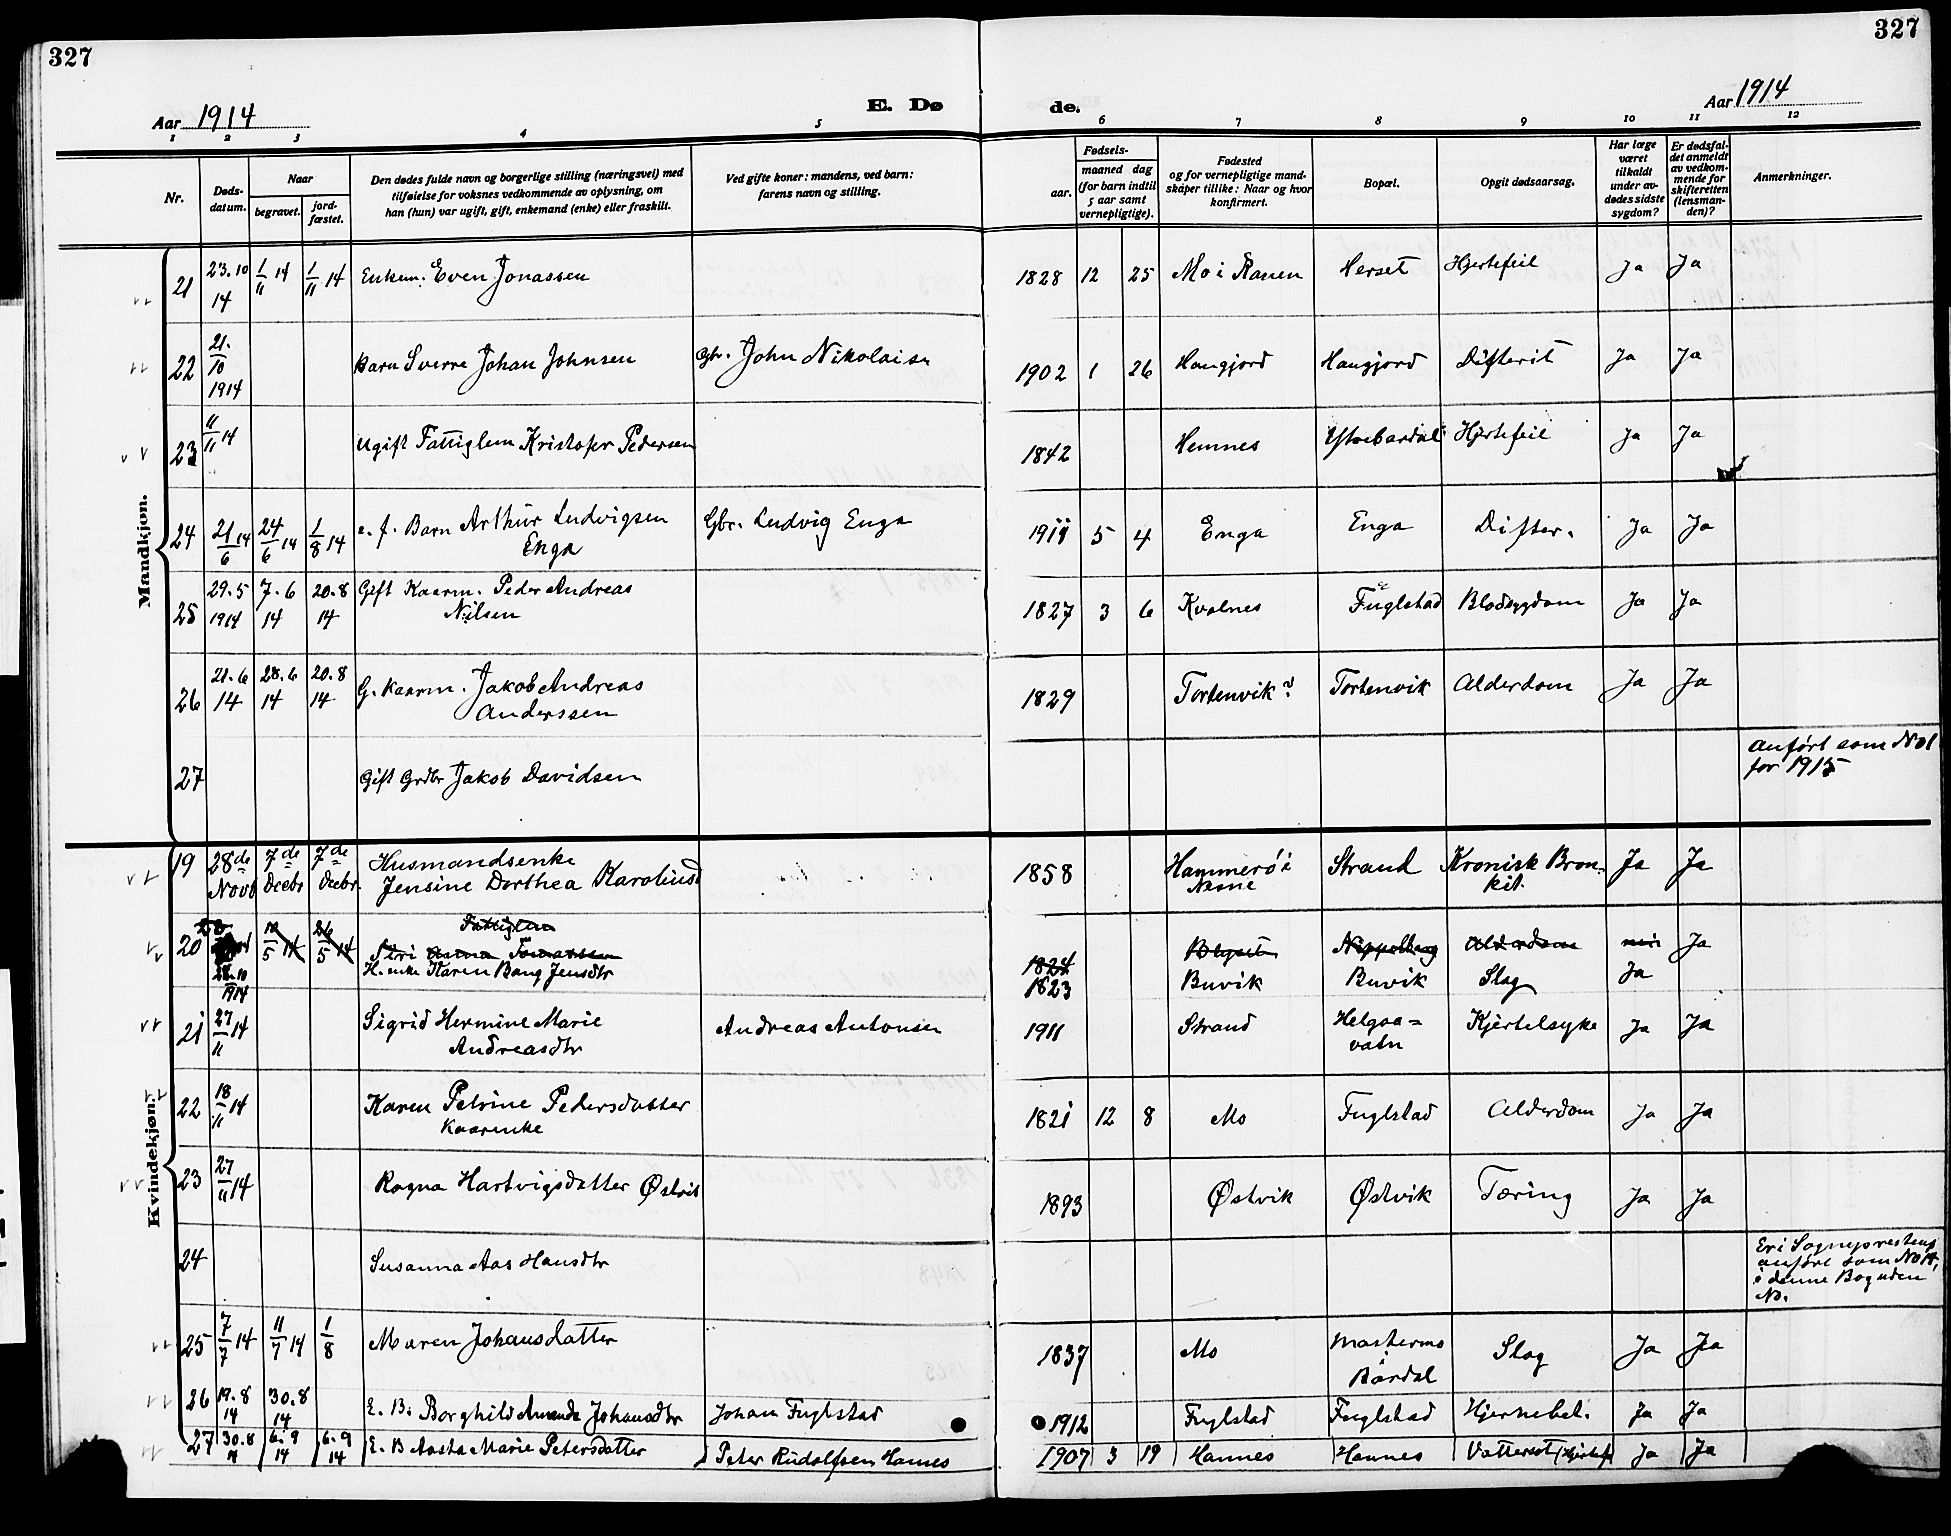 327
327
Aar 1914
E. Dø
de.
Aar 1914
1 2 3 4 5 6 7 8 9 10 11 12
Nr.
Døds-
datum.
Naar
begravet.
jord-
fæstet.
Den dødes fulde navn og borgerlige stilling (næringsvei) med
tilføielse for voksnes vedkommende av oplysning, om
han (hun) var ugift, gift, enkemand (enke) eller fraskilt.
Ved gifte koner: mandens, ved barn:
farens navn og stilling.
Fødsels-
aar.
maaned dag
(for barn indtil
5 aar samt
vernepligtige).
Fødested
og for vernepligtige mand-
skaper tillike: Naar og hvor
konfirmert.
Bopæl.
Opgit dødsaarsag.
Har læge
været
tilkaldt
under av-
dødes sidste
sygdom?
Er dødsfal-
det anmeldt
av vedkom-
mende for
skifteretten
(lensman-
den)?
Anmerkninger.
Mandkjøn.
21 23.10 14 1/11 14 1/11 14 Enkem. Even Jonassen 1828 12 25 Mo i Ranen Herset Hjertefeil Ja Ja
22 21/10 1914 Barn Sverre Johan Johnsen Gbr. John Nikolaisn 1902 1 26 Haugjord Haugjord Difterit Ja Ja
23 11/11 14 Ugift Fattiglem Kristofer Pedersen 1842 Hemnes Ytrebardal Hjertefeil Ja Ja
24 21/6 14 24/6 14 1/8 14 e. f. Barn Arthur Ludvigsen
Enga Gbr. Ludvig Enga 1911 5 4 Enga Enga Difter. Ja Ja
25 29.5 1914 7.6 14 20.8 14 Gift Kaarm. Peder Andreas
Nilsen 1827 3 6 Kvalnes Fuglstad Blodsygdom Ja Ja
26 21.6 14 28.6 14 20.8 14 G. Kaarm. Jakob Andreas
Anderssen 1829 Tortenvik? Tortenvik Alderdom Ja Ja
27 Gift Grdbr Jakob Davidsen anført som No 1
for 1915
Kvindekjøn.
19 28de Novb 7de Decbr 7de Decbr. Husmandsenke
Jensine Dorthea Karoliusd 1858 Hammerö i
Nesne Strand Kronisk Bron-
kit. Ja Ja
20 10/5 14 26/5 14 Fattiglem
Siri Tomassen 1824 Nippelberg Alderdom nei Ja
28.10 1914 H. enke Karen Bang Jensdtr 1823 Buvik Buvik Slag Ja
21 27/11 14 Sigrid Hermine Marie
Andreasdtr Andreas Antonsen 1911 Strand Helgaa=
vatn Kjertelsyke Ja Ja
22 18/11 14 Karen Petrine Pedersdatter
Kaarenke 1821 12 8 Mo Fuglstad Alderdom Ja Ja
23 27/11 14 Ragna Hartvigsdatter Østvik 1893 Østvik Østvik Tæring Ja Ja
24 Susanna Aas Hansdtr Er i Sogneprestens
anført som No 14,
i denne Bog uden
No.
25 7/7 14 11/7 14 1/8 Maren Johansdatter 1837 Mo Mastermo
i
Bardal Slag Ja Ja
26 19.8 14 30.8 14 E. B. Borghild Amanda Johansdtr Johan Fuglstad 1912 Fuglstad Fuglstad Hjernebet. Ja Ja
27 30.8 14 6.9 14 6.9 14 E. B Aasta Marie Petersdatter Peter Rudolfsen Hannes 1907 3 19 Hannes Hannes Vattersot (Hjertef Ja Ja